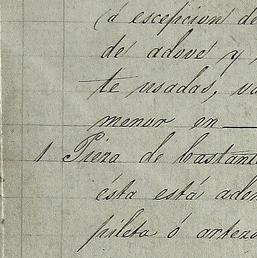 (á escepcion de
de adove y,
te usadas, va
menor en
1 Pieza de bastant
ésta está ade
pileta ó arteza